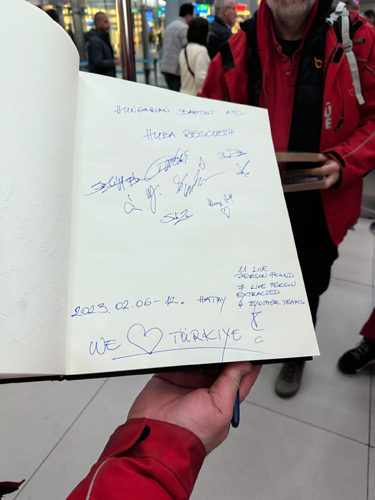 HUNGARIAN BAPTIST AID
HUBA RESCUE24
11 LIVE
PERSON FOUND
7 LIVE PERSON
EXTRACTED
4 BY OTHER TEAMS
2023.02.06-12. HATAY
WE ♡ TÜRKIYE